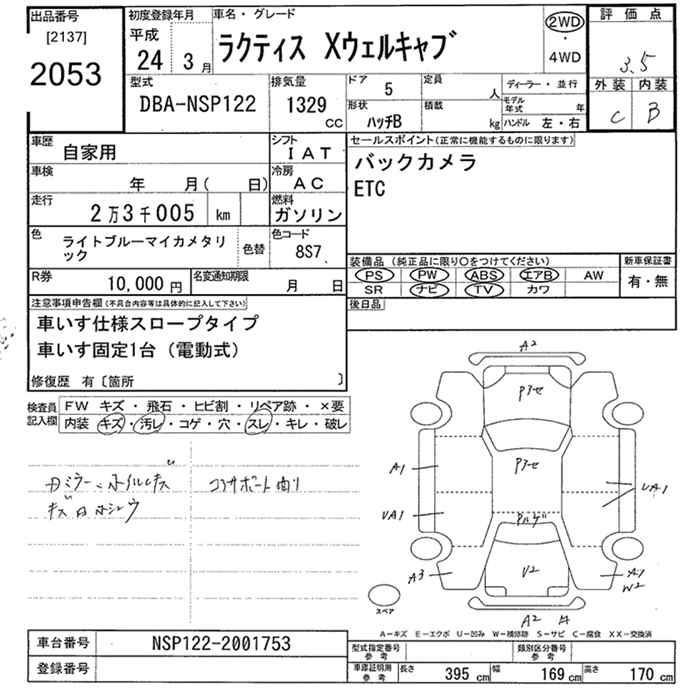 出品番号
[2137]
2053
初度登録年月
平成
24年 3月
車名・グレード
ラクティス Xウェルキャブ
2WD
・
4WD
評価点
3.5
外装 内装
C B
型式
DBA-NSP122
排気量
1329
CC
ドア 5
形状
ハッチB
定員
人
積載
kg
ディーラー・並行
モデル年式 年
ハンドル 左・右
車歴 自家用
シフト
IAT
車検 年 月( 日)
冷房
AC
走行 2万3千005 km
燃料
ガソリン
色 ライトブルーマイカメタリック
色替
色コード
8S7
R券 10,000円
名変通知期限
月 日
セールスポイント(正常に機能するものに限ります)
バックカメラ
ETC
装備品(純正品に限り〇をつけてください)
PS PW ABS エアB AW
SR ナビ TV カワ
新車保証書
有・無
後日品
注意事項申告欄(不具合内容等は具体的に記入して下さい)
車いす仕様スロープタイプ
車いす固定1台(電動式)
修復歴 有〔箇所 〕
検査員記入欄
FW キズ・飛石・ヒビ割・リペア跡・×要
内装 キズ・汚レ・コゲ・穴・スレ・キレ・破レ
A2
Pアセ
Pアセ
A1
UA1
UA1
A3
U2
A1
W2
A2
A
スペア
A-キズ E-エクボ U-凹み W-補修跡 S-サビ C-腐食 XX-交換済
車台番号 NSP122-2001753
登録番号
型式指定番号
参考
類別区分番号
参考
車庫証明用
参考
長さ 395 cm
幅 169 cm
高さ 170 cm